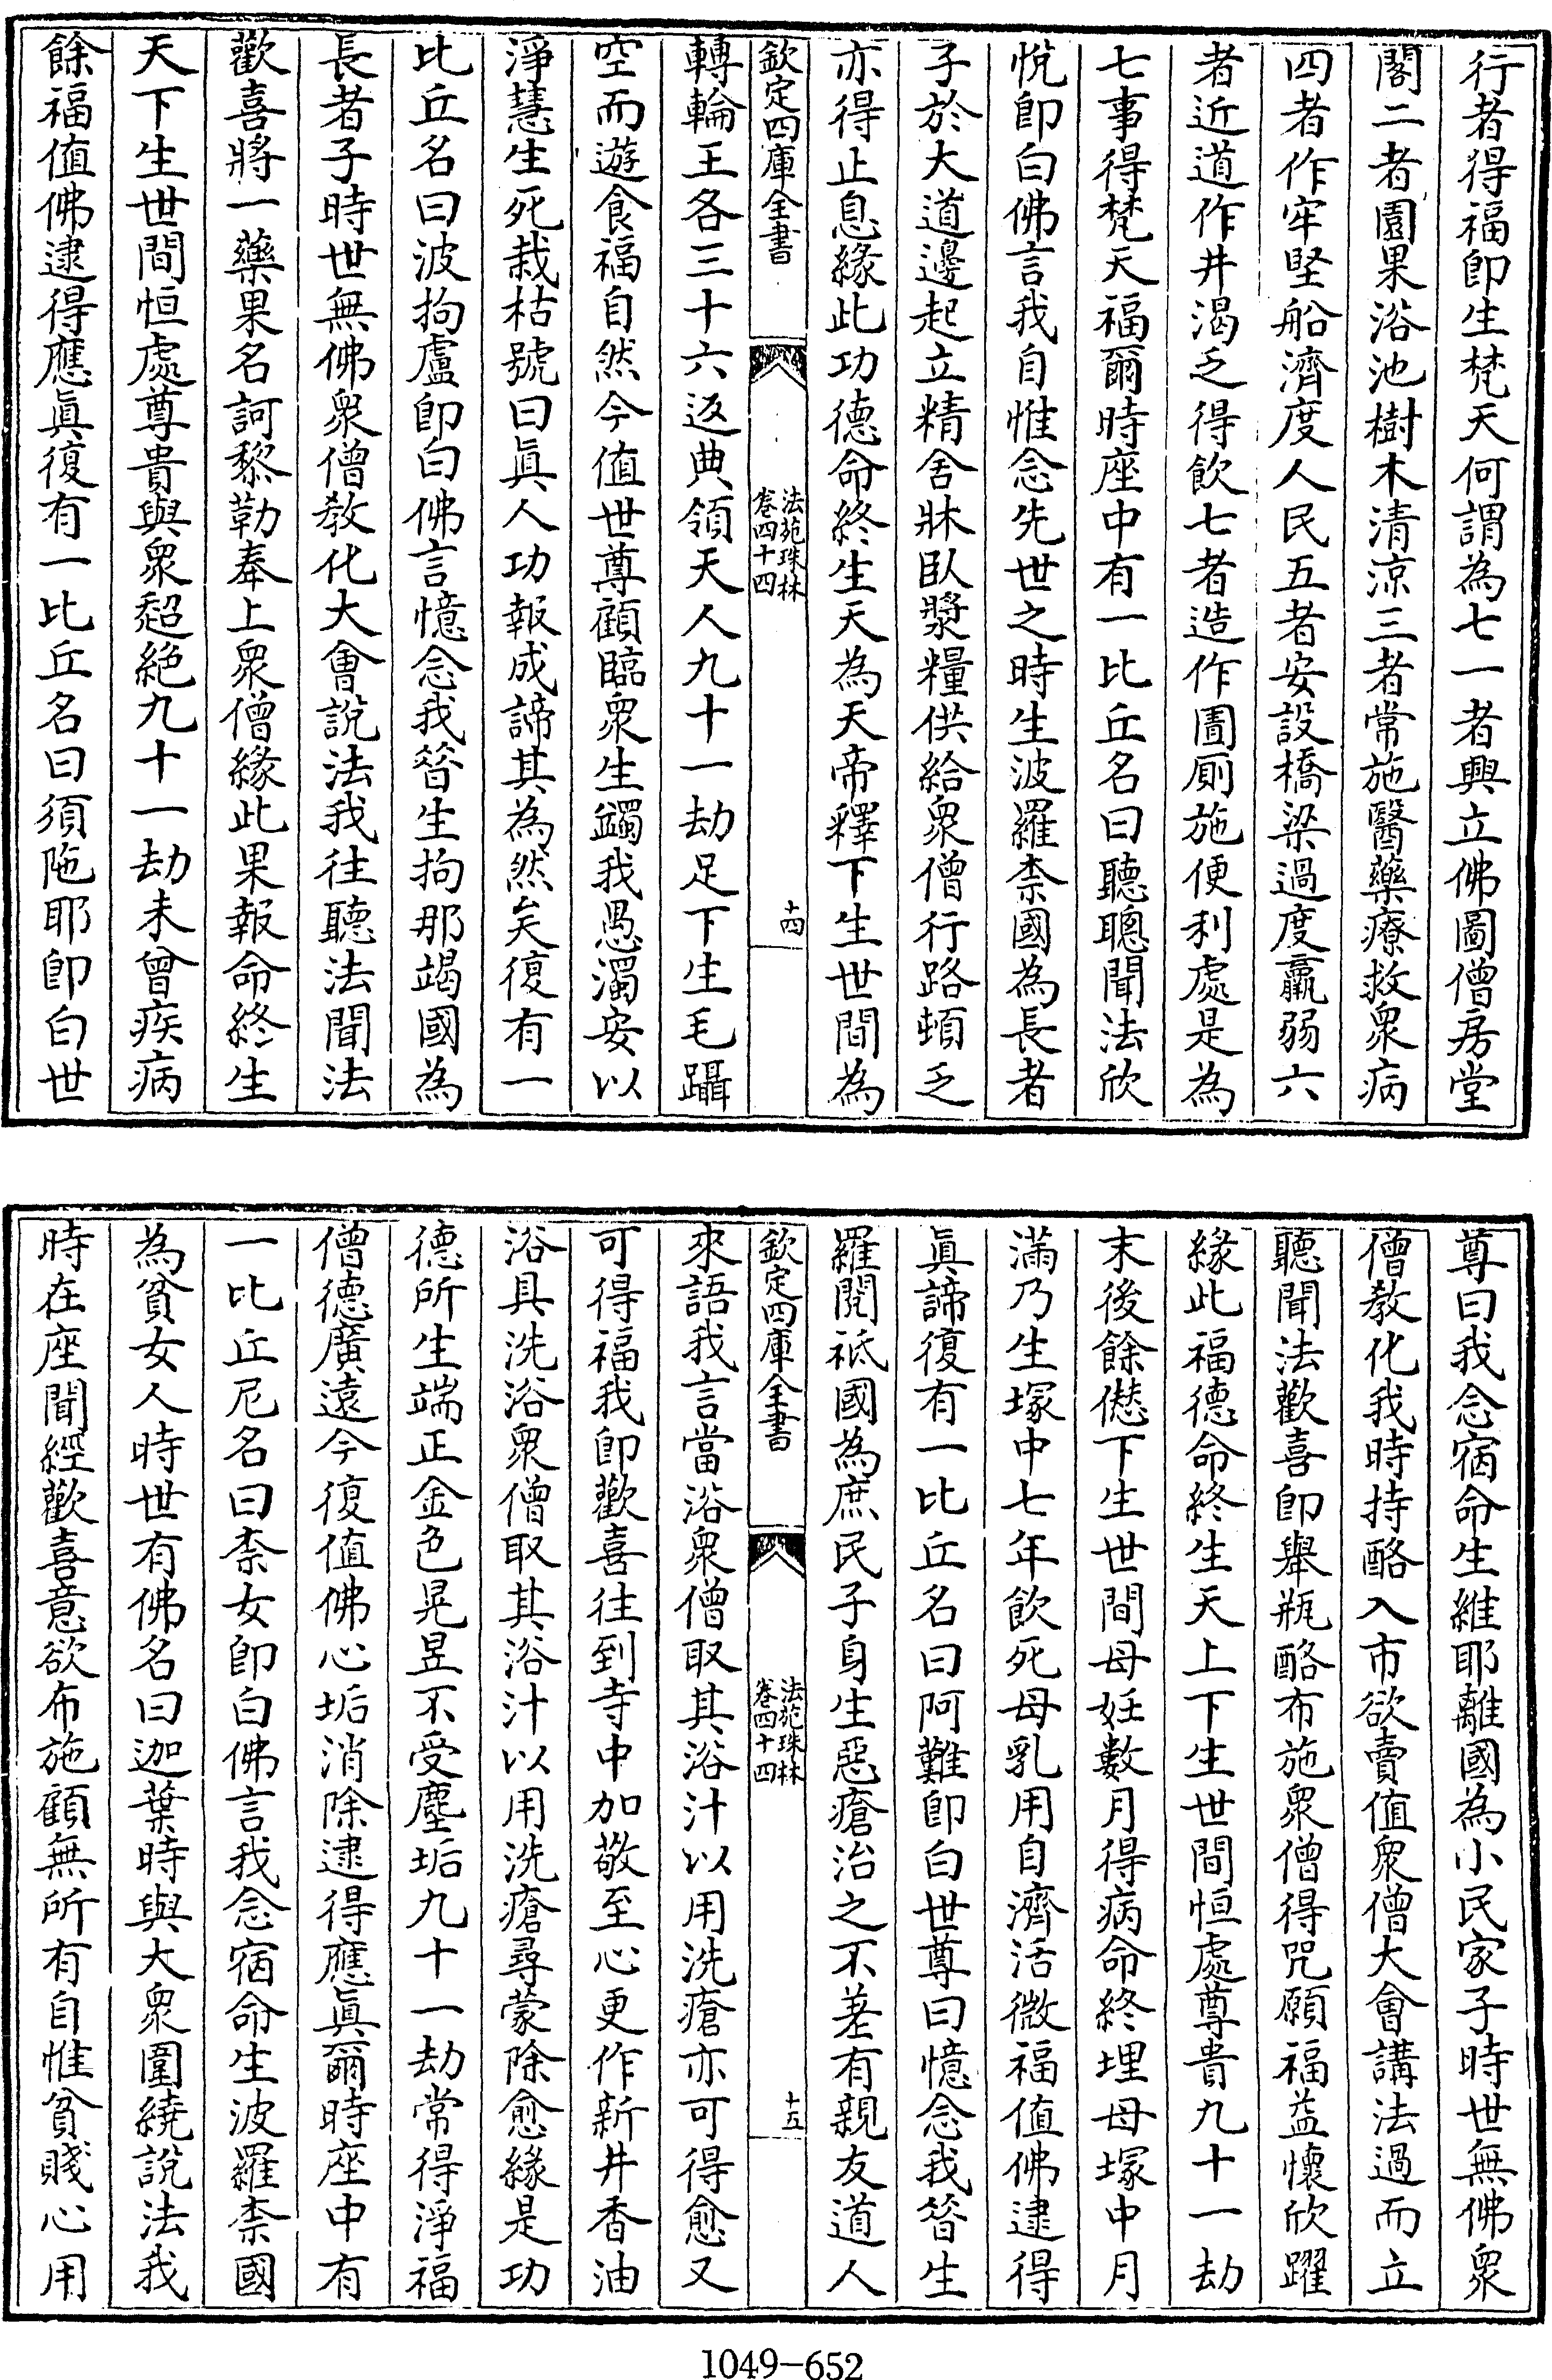 行者得福即生梵天何謂為七一者興立佛圖僧房堂
閣二者園果浴池樹木清涼三者常施醫藥療救衆病
四者作牢堅船濟度人民五者安設橋梁過度羸弱六
者近道作井渴乏得飲七者造作圊厠施便利處是為
七事得梵天福爾時座中有一比丘名曰聽聰聞法欣
悅即白佛言我自惟念先世之時生波羅柰國為長者
子於大道邊起立精舍牀臥漿糧供給衆僧行路頓乏
亦得止息緣此功德命終生天為天帝釋下生世間為
欽定四庫全書
法苑珠林
卷四十四
十四
轉輪王各三十六返典領天人九十一劫足下生毛躡
空而遊食福自然今值世尊顧臨衆生蠲我愚濁安以
淨慧生死栽枯號曰眞人功報成諦其為然矣復有一
比丘名曰波拘盧即白佛言憶念我昝生拘那竭國為
長者子時世無佛衆僧教化大會說法我往聽法聞法
歡喜將一藥果名訶黎勒奉上衆僧緣此果報命終生
天下生世間恒處尊貴與衆超絶九十一劫未曾疾病
餘福值佛逮得應眞復有一比丘名曰須陁耶即白世
尊曰我念宿命生維耶離國為小民家子時世無佛衆
僧教化我時持酪入市欲賣值衆僧大會講法過而立
聽聞法歡喜即舉瓶酪布施衆僧得咒願福益懷欣躍
緣此福德命終生天上下生世間恒處尊貴九十一劫
末後餘僽下生世間母妊數月得病命終埋母塚中月
滿乃生塚中七年飲死母乳用自濟活微福值佛逮得
眞諦復有一比丘名曰阿難即白世尊曰憶念我昝生
羅閱祇國為庶民子身生惡瘡治之不差有親友道人
欽定四庫全書
法苑珠林
卷四十四
十五
來語我言當浴衆僧取其浴汁以用洗瘡亦可得愈又
可得福我即歡喜往到寺中加敬至心更作新井香油
浴具洗浴衆僧取其浴汁以用洗瘡尋蒙除愈緣是功
德所生端正金色晃昱不受塵垢九十一劫常得淨福
僧德廣遠今復值佛心垢消除逮得應眞爾時座中有
一比丘尼名曰柰女即白佛言我念宿命生波羅柰國
為貧女人時世有佛名曰迦葉時與大衆圍繞說法我
時在座聞經歡喜意欲布施顧無所有自惟貧賤心用
1049-652